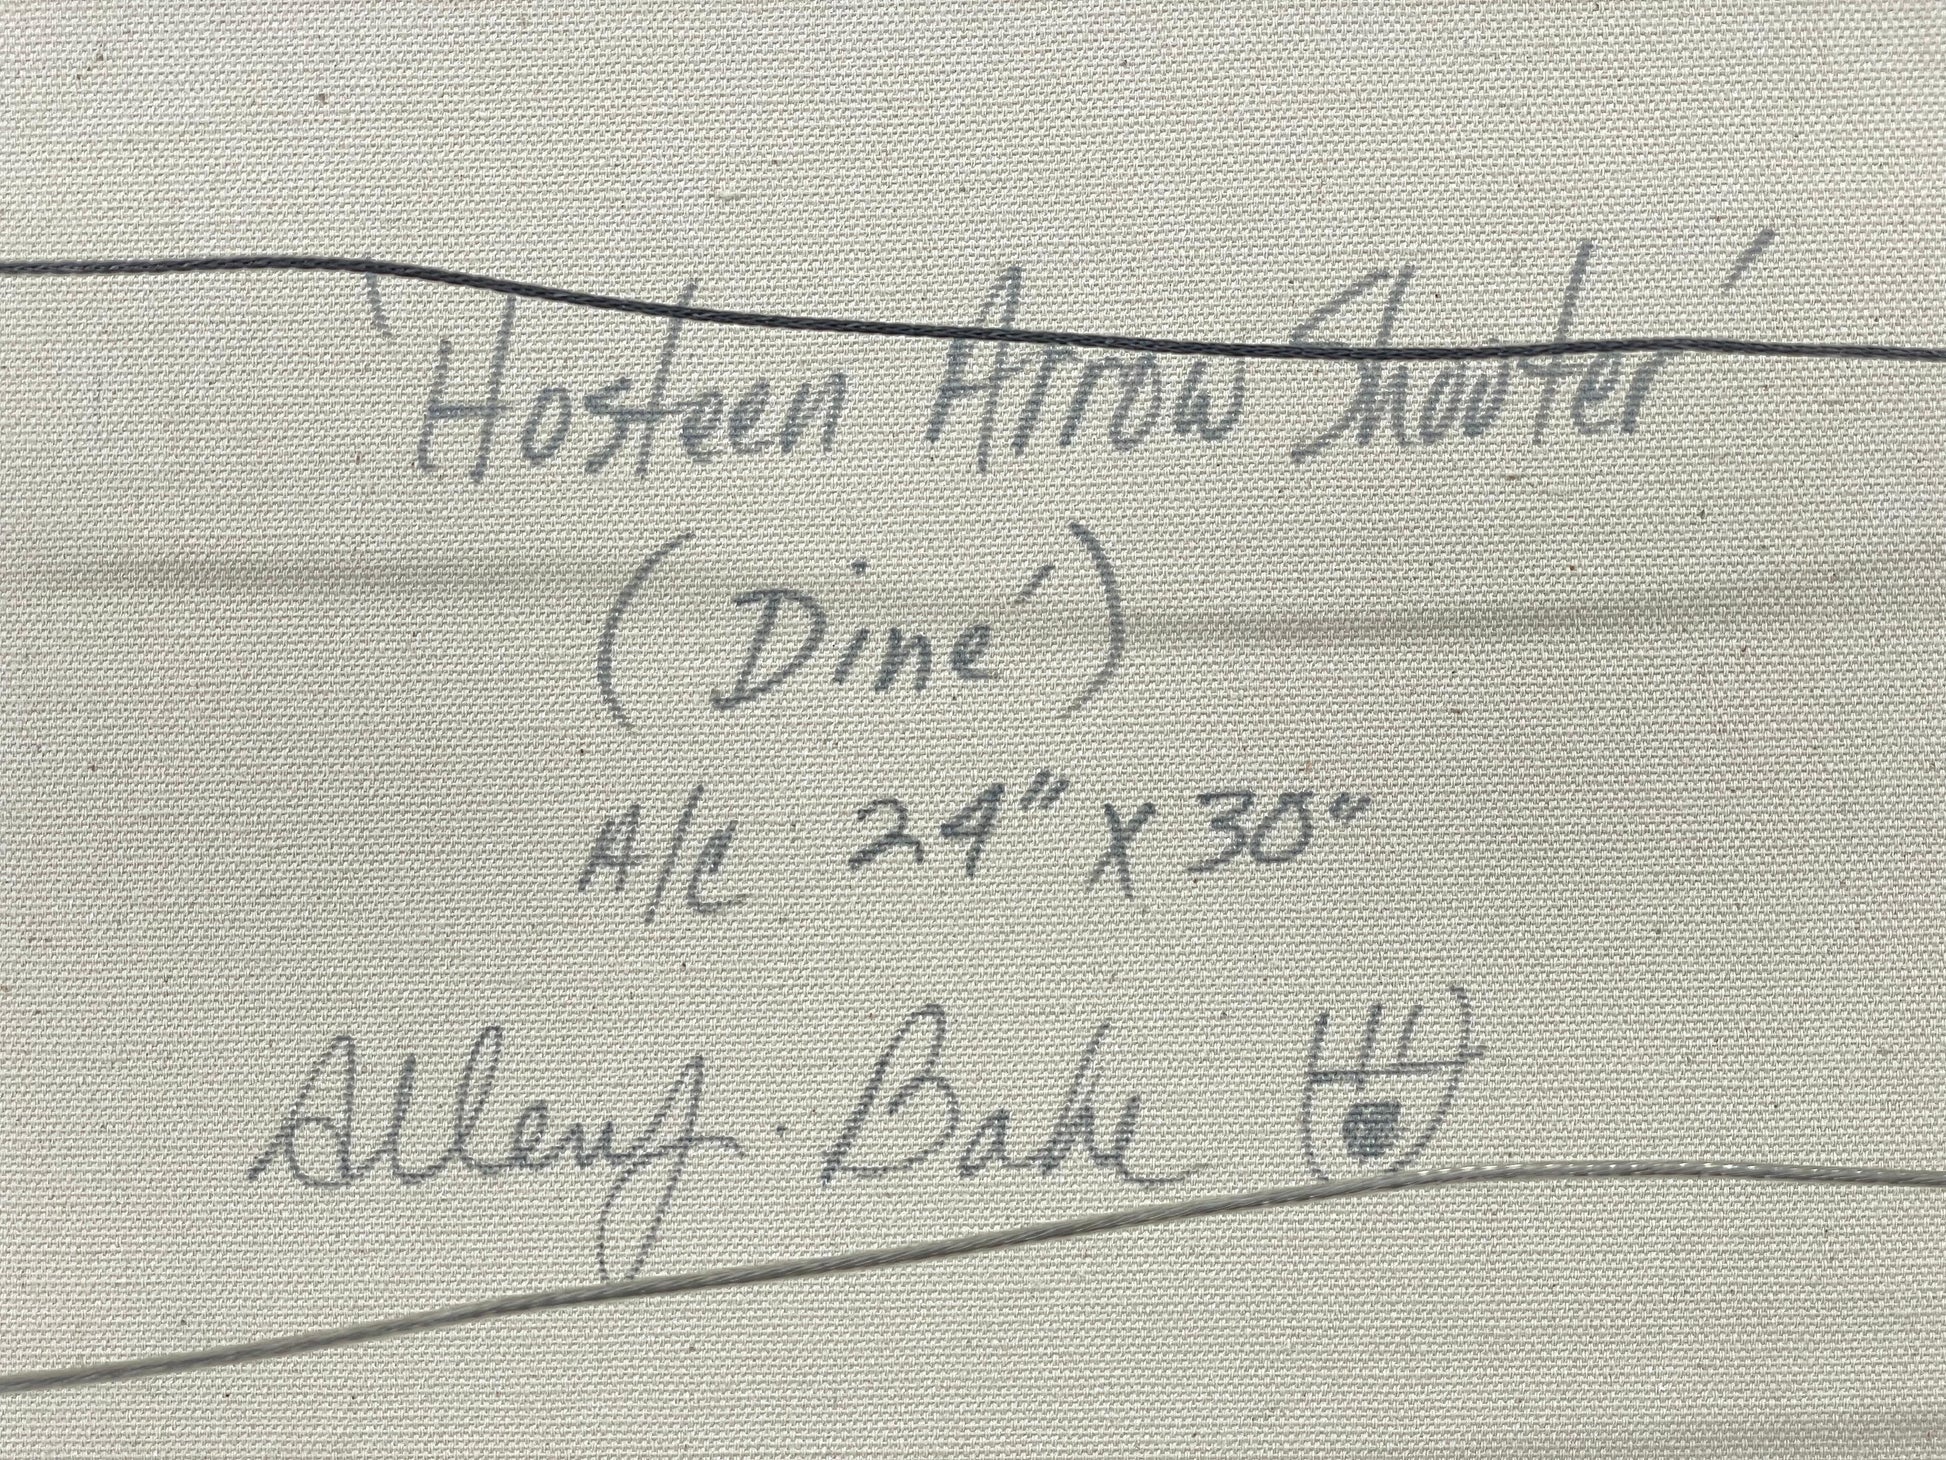 'Hosteen Arrow Shooter'
(Diné)
A/C 24" X 30"
Alleny. Bahe